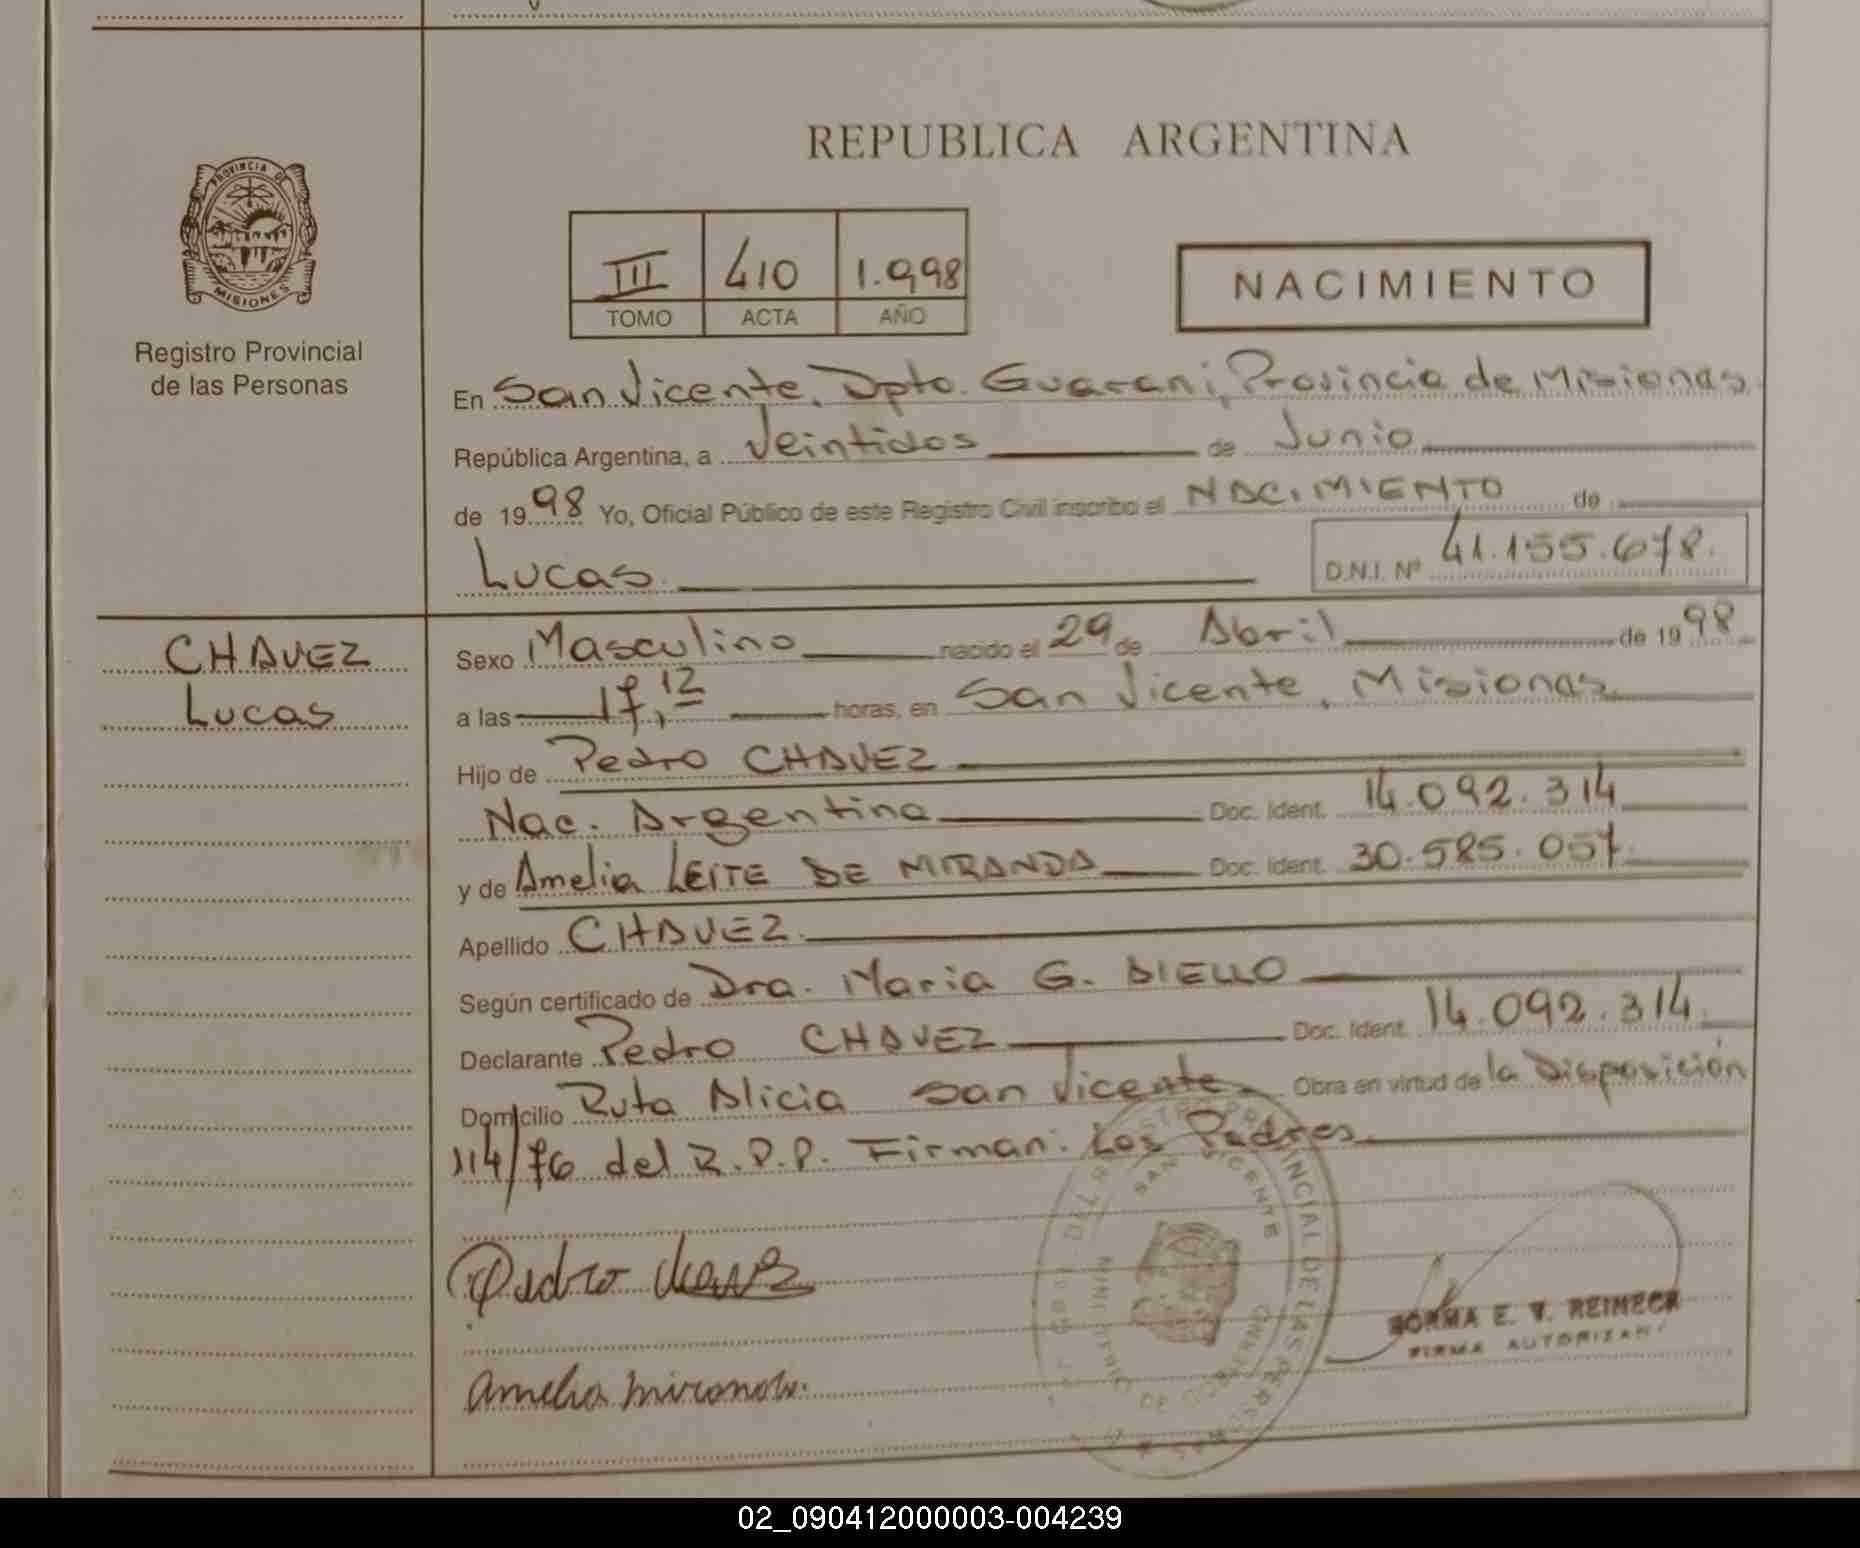 REPUBLICA ARGENTINA
PROVINCIA DE
MISIONES
Registro Provincial
de las Personas
III 410 1.998
TOMO ACTA AÑO
NACIMIENTO
En San Vicente, Dpto. Guarani, Provincia de Misiones
República Argentina, a Veintidos de Junio
de 1998 Yo, Oficial Público de este Registro Civil inscribo el NACIMIENTO de
Lucas. D.N.I. Nº 41.155.678.
CHAVEZ
Lucas
Sexo Masculino nacido el 29 de Abril de 1998
a las 17,12 horas, en San Vicente, Misiones
Hijo de Pedro CHAVEZ
Nac. Argentina Doc. Ident. 14.092.314
y de Amelia LEITE DE MIRANDA Doc. Ident. 30.585.057.
Apellido CHAVEZ.
Según certificado de Dra. Maria G. AIELLO
Declarante Pedro CHAVEZ Doc. Ident. 14.092.314.
Domicilio Ruta Alicia San Vicente Obra en virtud de la Disposición
114/76 del R.P.P. Firman: Los Padres.
Pedro Chavez
NORMA E. V. REIMECK
FIRMA AUTORIZAN
Amelia Miranda.
PROVINCIAL DE LAS PERSONAS
SAN VICENTE
MINISTERIO DE GOBIERNO
02_090412000003-004239